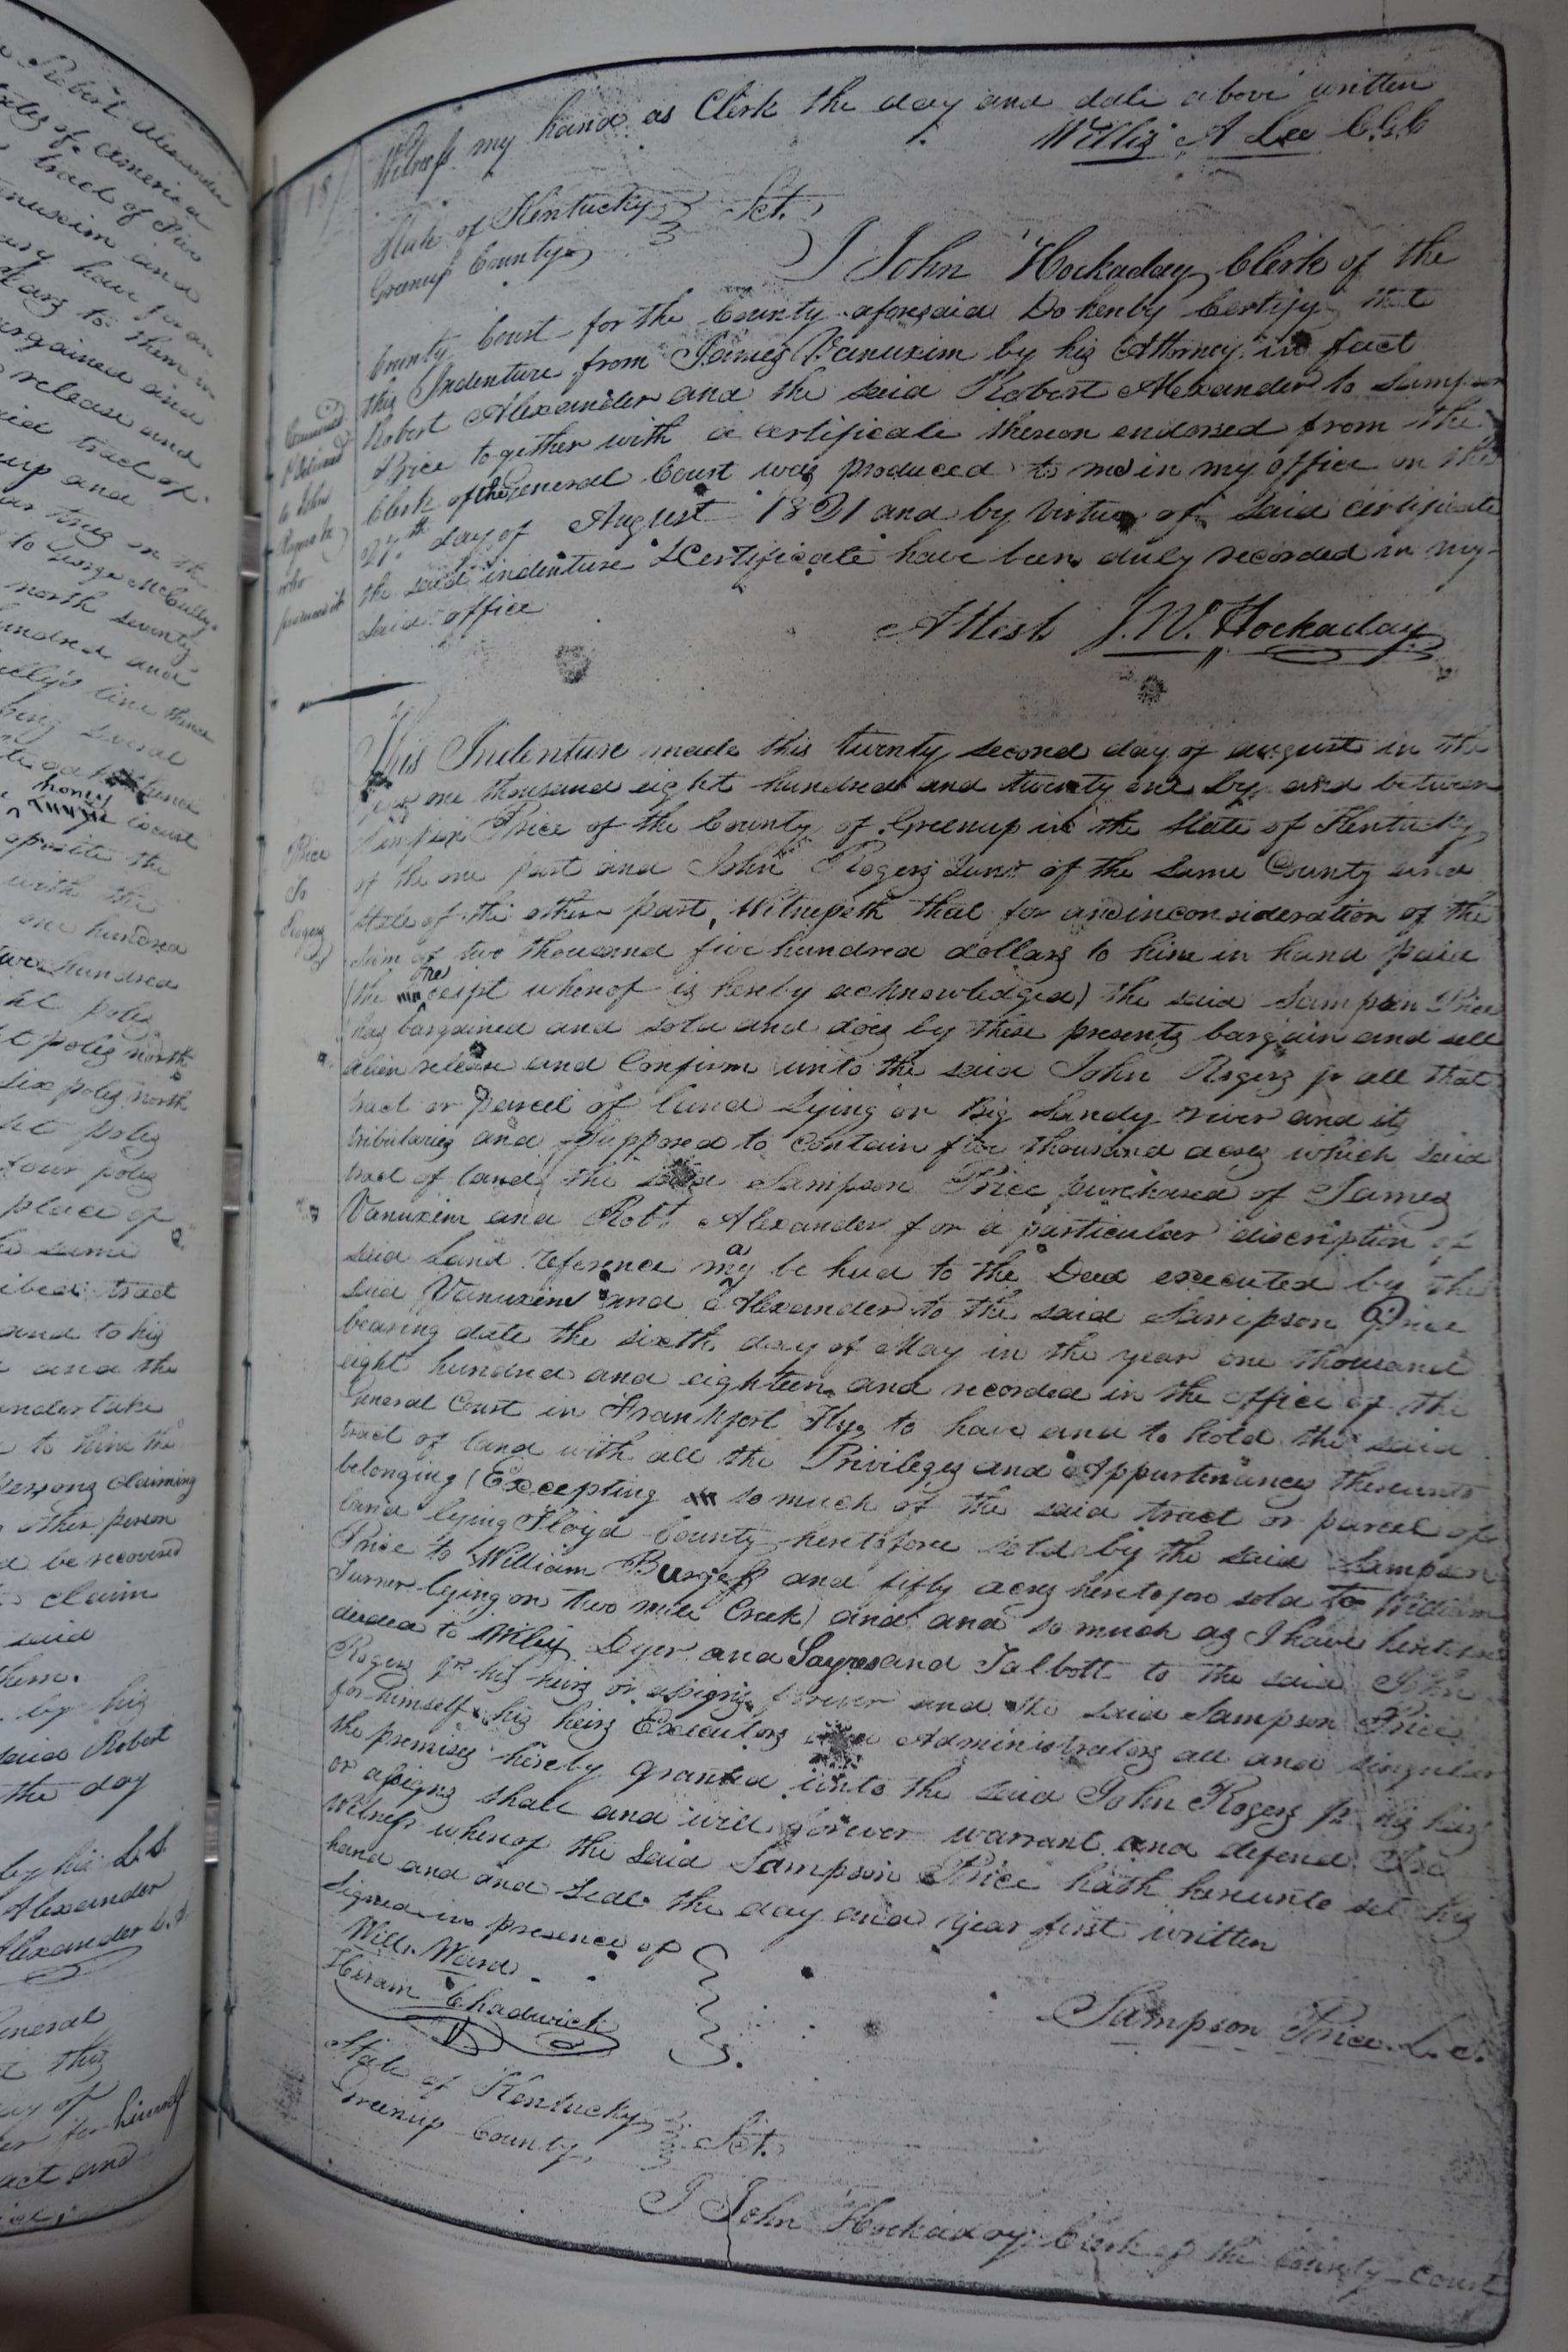 Robert Alexander
of America
tract of
Vanuxim and
have
to them
bargained and
release and
said tract of
and
in the
to George McCully
north seventy
hundred and
line thence
several
thence
honey
locust
oposite the
with the
one hundred
two hundred
poles
poles north
six poles north
poles
four poles
place of
same
tract
and to his
and the
undertake
to him the
persons claiming
other person
be recovered
claim
said
them.
by his
said Robert
the day
by his L.S.
Alexander
Alexander L.S.
General
this
day of
for himself
act and
18
Witness my hand as Clerk the day and date above written
Willis A Lee C.G.C
State of Kentucky Sct.
Greenup County
I John Hockaday Clerk of the
County Court for the County aforesaid Do hereby Certify that
this Indenture from James Vanuxim by his Attorney in fact
Robert Alexander and the said Robert Alexander to Sampson
Price together with a certificate thereon endorsed from the
Clerk of the General Court was produced to me in my office on the
27th day of August 1821 and by virtue of said certificate
the said indenture & Certificate have been duly recorded in my
said office
Attest J. W. Hockaday
Examined
& delivered
to John
Rogers Jr
who
presented it
This Indenture made this twenty second day of august in the
year one thousand eight hundred and twenty one by and between
Sampson Price of the County of Greenup in the State of Kentucky
of the one part and John Rogers Junr of the same County and
State of the other part, Witnesseth that for and in consideration of the
sum of two thousand five hundred dollars to him in hand paid
(the receipt whereof is hereby acknowledged) the said Sampson Price
has bargained and sold and does by these presents bargain and sell
alien release and Confirm unto the said John Rogers jr all that
tract or parcel of land Lying on Big Sandy river and its
tributaries and supposed to contain five thousand acres which said
tract of land the said Sampson Price purchased of James
Vanuxim and Robt Alexander for a particular discription of
said Land reference may be had to the Deed executed by the
said Vanuxim and Alexander to the said Sampson Price
bearing date the sixth day of May in the year one thousand
eight hundred and eighteen and recorded in the office of the
General Court in Frankfort Ky, to have and to hold the said
tract of land with all the Privileges and Appurtinances thereunto
belonging (Excepting so much of the said tract or parcel of
land lying Floyd County heretofore sold by the said Sampson
Price to William Burgess and fifty acres heretofore sold to William
Turner lying on two mile Creek) and and so much as I have heretofore
deeded to Wiley Dyer and Sayres and Talbott to the said John
Rogers Jr his heirs or assigns forever and the said Sampson Price
for himself his heirs Executors and Administrators all and singular
the premises hereby granted unto the said John Rogers Jr his heirs
or assigns shall and will forever warrant and defend. In
Witness whereof the said Sampson Price hath hereunto set his
hand and and Seal the day and year first written
Price
To
Rogers
Signed in presence of
Will. Ward
Hiram Chadwick
Sampson Price L.S.
State of Kentucky Sct.
Greenup County
I John Hockaday Clerk of the County Court